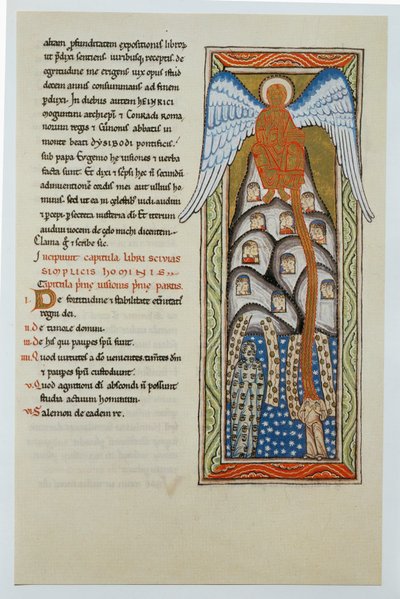 altam profunditatem expositionis libroꝝ
ut p̄dixi sentiens. uiribusq; receptis de
egritudine me erigens uix opus istud
decem annis consummans ad finem
p̄duxi. In diebus autem HEINRICI
moguntini archiep̄i ⁊ Conradi Roma
norum regis ⁊ Cunonis abbatis in
monte beati DYSIBODI pontificis.
sub papa Eugenio he uisiones ⁊ uerba
facta sunt. Et dixi ⁊ sc̄psi hec n̄ secundū
adinuentionem cordis mei aut ullius ho
minis. sed ut ea in celestib; uidi. audiui
⁊ p̄cepi. p̄ secreta misteria dī. Et iterum
audiui uocem de celo michi dicentem.
Clama g̊ ⁊ scribe sic.
Incipiunt capitula libri sciuias
SIMPLICIS HOMINIS.
Capitula p̄me uisionis p̄me partis.
I. De fortitudine ⁊ stabilitate et̄nitatis
regni dei.
II. De timore domini.
III. De his qui pauperes sp̄u sunt.
IIII. Quod uirtutes a dō uenientes. timentes dm̄
⁊ paupes sp̄u custodiunt.
V. Quod agnitioni dī abscondi n̄ possunt
studia actuum hominum.
VI. Salemon de eadem re.